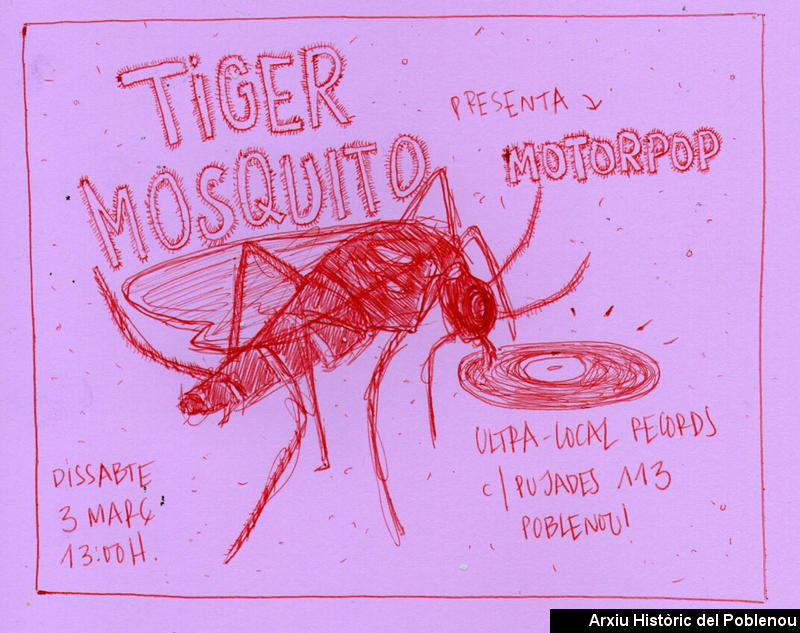 TiGER
MOSQUITO
PRESENTA
MOTORPOP
ULTRA-LOCAL RECORDS
c/PUJADES 113
POBLENOU!
DISSABTE
3 MARÇ
13:00H.
Arxiu Històric del Poblenou